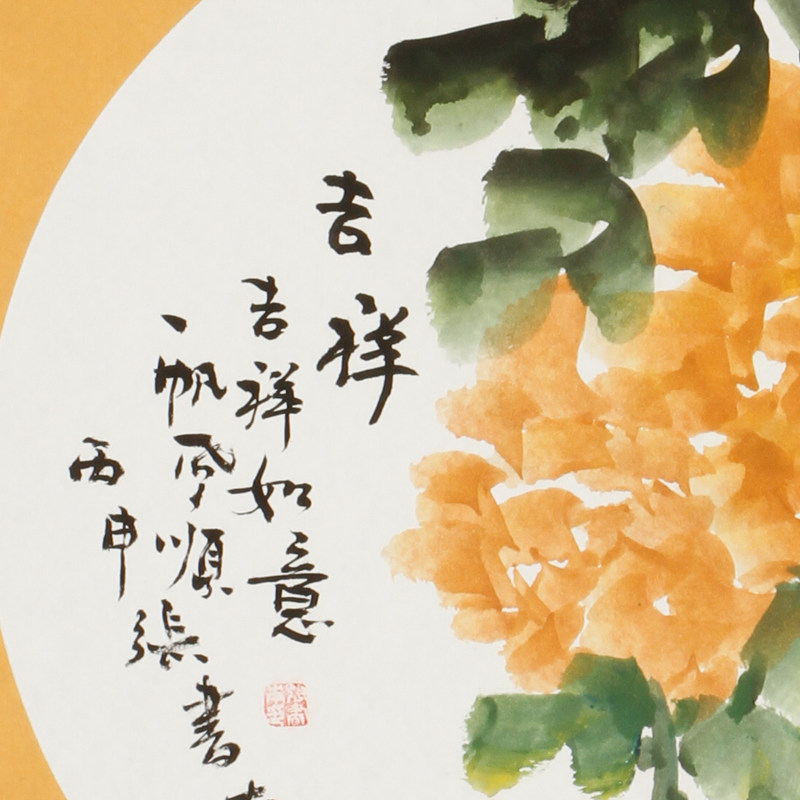 吉祥
吉祥如意
一帆風順
丙申張書